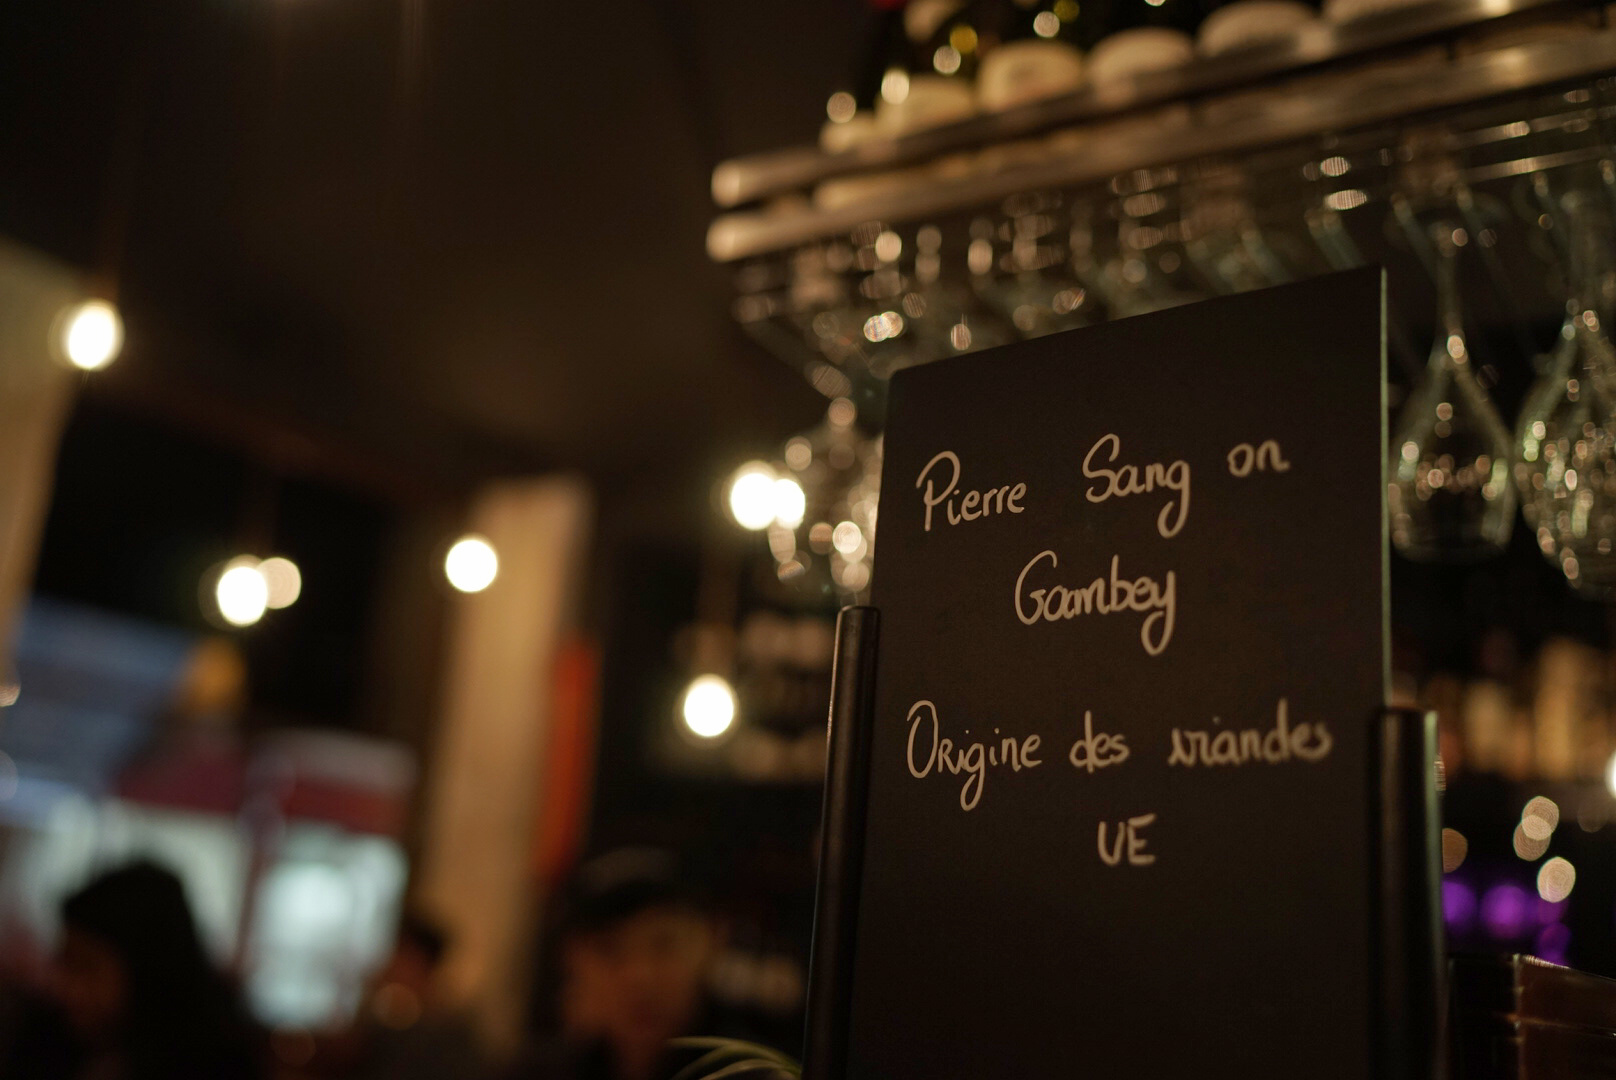 Pierre Sang on
Gambey
Origine des viandes
UE